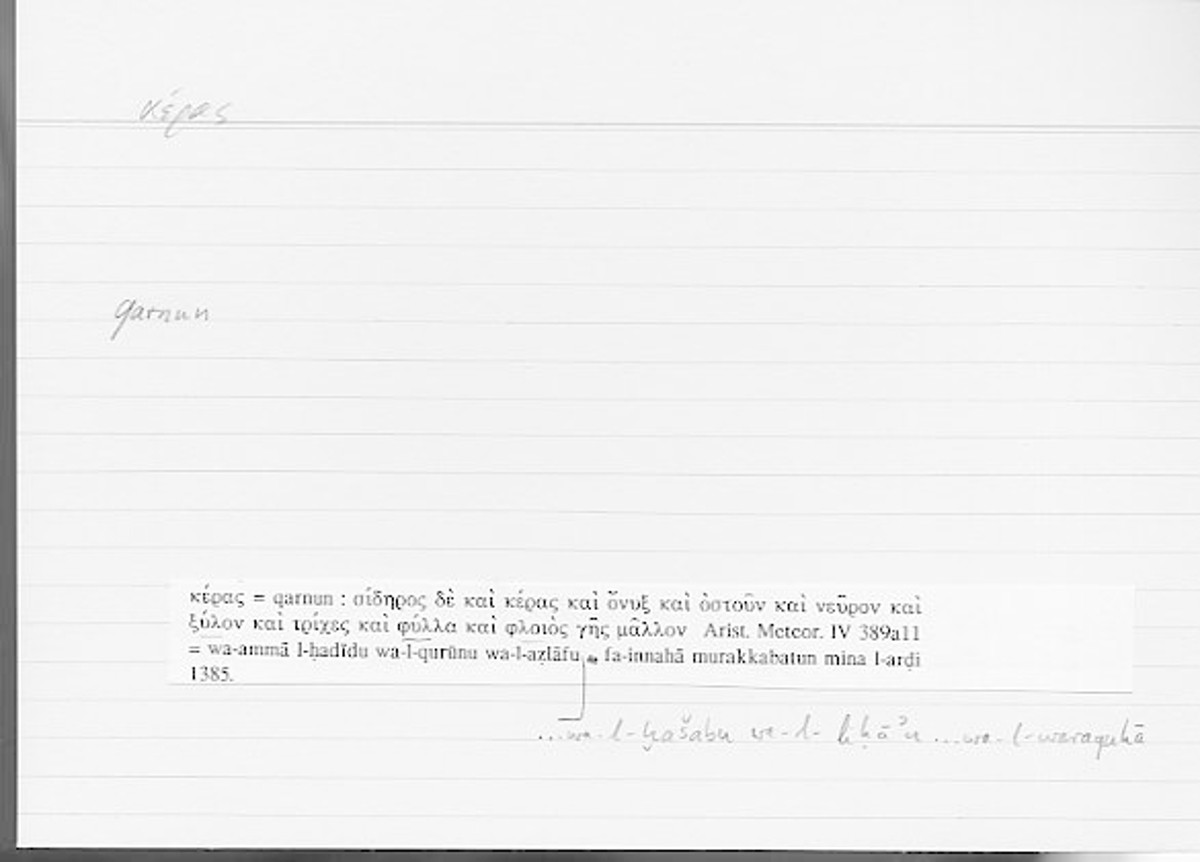 κέρας
qarnun
κέρας = qarnun : σίδηρος δὲ καὶ κέρας καὶ ὄνυξ καὶ ὀστοῦν καὶ νεῦρον καὶ
ξύλον καὶ τρίχες καὶ φύλλα καὶ φλοιὸς γῆς μᾶλλον Arist. Meteor. IV 389a11
= wa-ammā l-ḥadīdu wa-l-qurūnu wa-l-aẓlāfu fa-innahā murakkabatun mina l-arḍi
1385.
...wa-l-ḫašabu wa-l-liḥāʾu ...wa-l-waraquhā